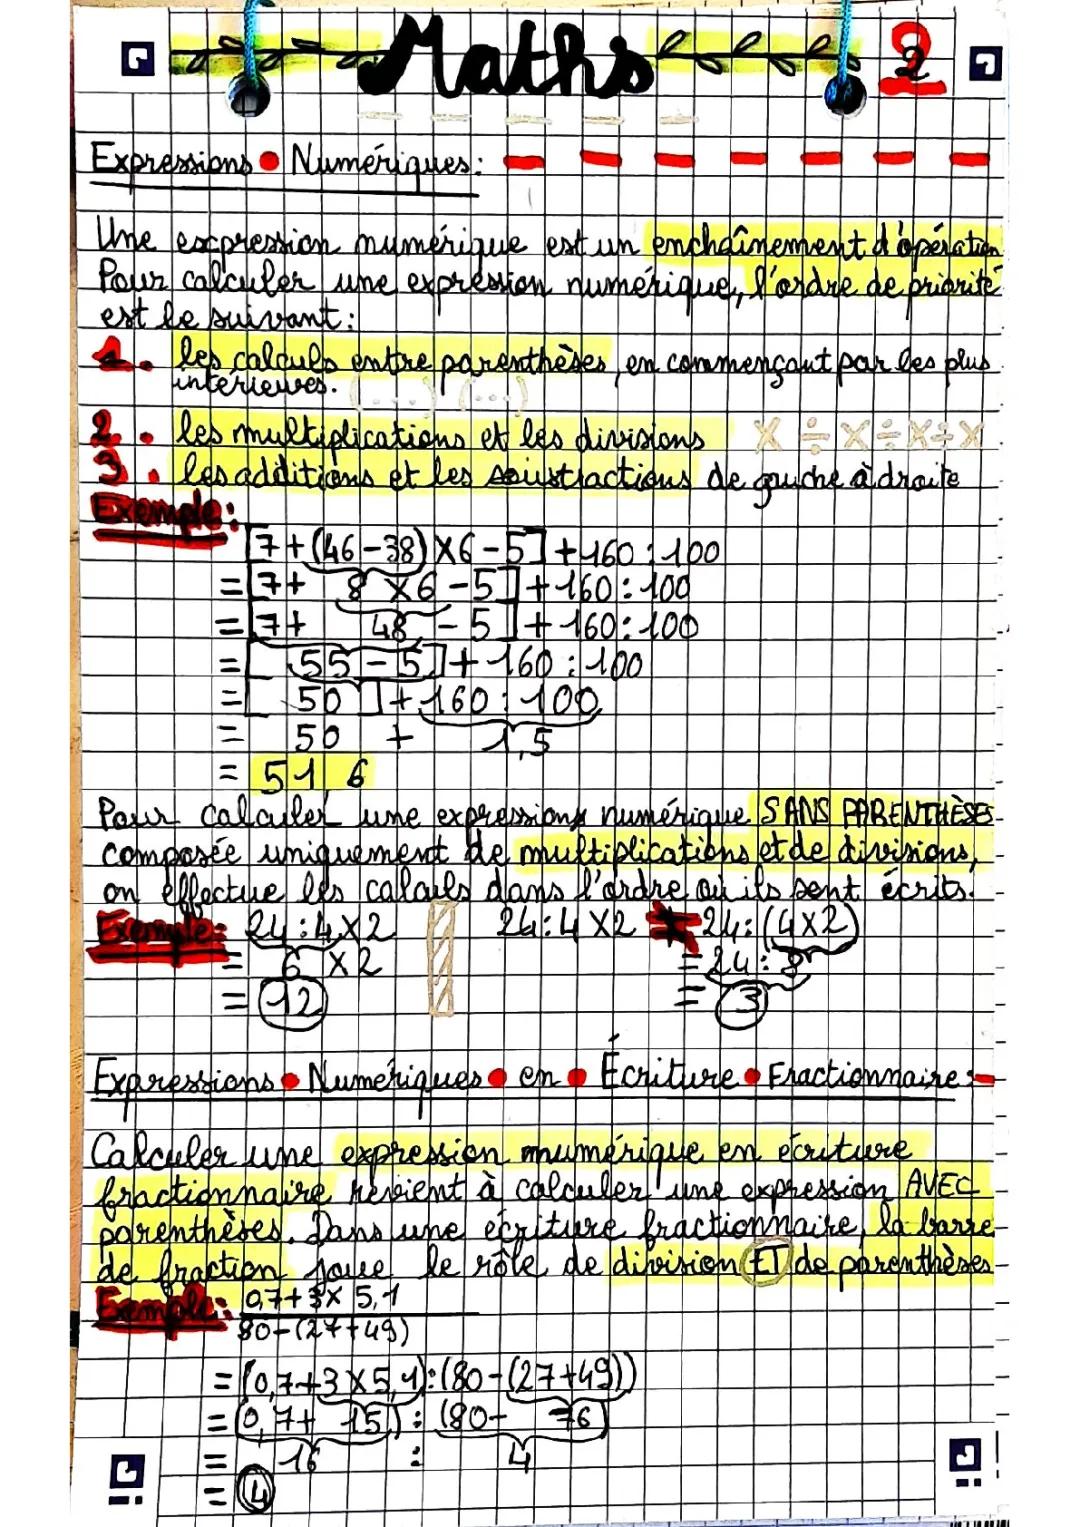 Maths 2
Expressions • Numériques:
Une expression numérique est un enchaînement d'opération
Pour calculer une expression numérique, l'ordre de priorité
est le suivant:
1. les calculs entre parenthèses, en commençant par les plus
intérieures. (...) (...)
2. les multiplications et les divisions × ÷ × ÷ × ÷ ×
3. les additions et les soustractions de gauche à droite
Exemple:
[7+(46-38)×6-5]+160:100
=[7+ 8 ×6-5]+160:100
=[7+ 48 -5]+160:100
=[55-5]+160:100
=[50]+160:100
= 50 + 1,5
= 51 6
Pour calculer une expressions numérique SANS PARENTHÈSES
composée uniquement de multiplications et de divisions,
on effectue les calculs dans l'ordre où ils sont écrits.
Exemple: 24:4×2 24:4×2 ≠ 24:(4×2)
= 6 ×2 = 24:8
= 12 = 3
Expressions • Numériques • en • Écriture • Fractionnaire:
Calculer une expression numérique en écriture
fractionnaire revient à calculer une expression AVEC
parenthèses. Dans une écriture fractionnaire, la barre
de fraction joue le rôle de division ET de parenthèses
Exemple: 0,7+3×5,1
80-(27+49)
=(0,7+3×5,1):(80-(27+49))
=(0,7+ 15,):(80- 76)
= 16 : 4
= 4